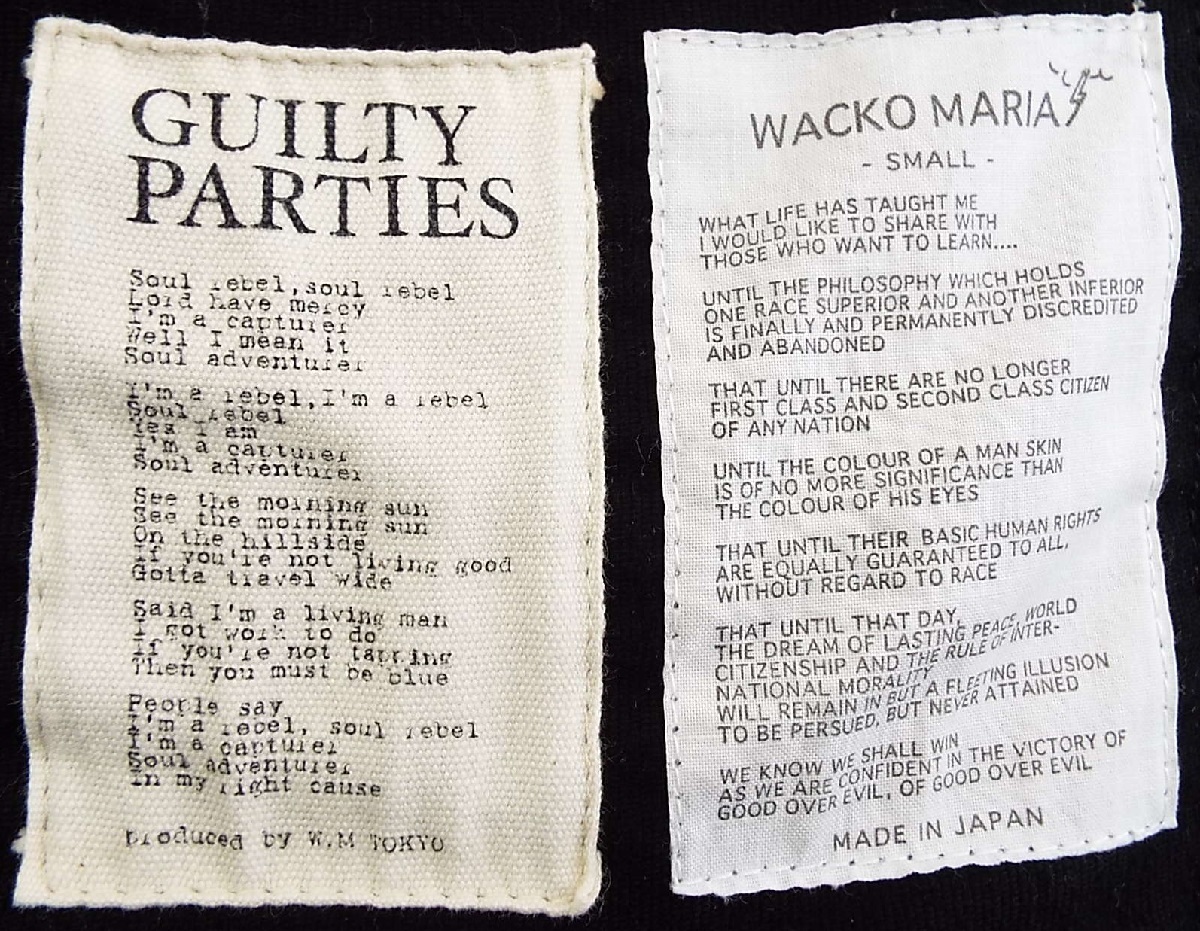 GUILTY
PARTIES
Soul rebel,soul rebel
Lord have mercy
I'm a capturer
Well I mean it
Soul adventurer
I'm a rebel,I'm a rebel
Soul rebel
Yes I am
I'm a capturer
Soul adventurer
See the morning sun
See the morning sun
On the hillside
If you're not living good
Gotta travel wide
Said I'm a living man
I got work to do
If you're not tapping
Then you must be blue
People say
I'm a rebel, soul rebel
I'm a capturer
Soul adventurer
In my right cause
produced by W.M TOKYO
WACKO MARIA
- SMALL -
WHAT LIFE HAS TAUGHT ME
I WOULD LIKE TO SHARE WITH
THOSE WHO WANT TO LEARN....
UNTIL THE PHILOSOPHY WHICH HOLDS
ONE RACE SUPERIOR AND ANOTHER INFERIOR
IS FINALLY AND PERMANENTLY DISCREDITED
AND ABANDONED
THAT UNTIL THERE ARE NO LONGER
FIRST CLASS AND SECOND CLASS CITIZEN
OF ANY NATION
UNTIL THE COLOUR OF A MAN SKIN
IS OF NO MORE SIGNIFICANCE THAN
THE COLOUR OF HIS EYES
THAT UNTIL THEIR BASIC HUMAN RIGHTS
ARE EQUALLY GUARANTEED TO ALL,
WITHOUT REGARD TO RACE
THAT UNTIL THAT DAY,
THE DREAM OF LASTING PEACE, WORLD
CITIZENSHIP AND THE RULE OF INTER-
NATIONAL MORALITY
WILL REMAIN IN BUT A FLEETING ILLUSION
TO BE PERSUED, BUT NEVER ATTAINED
WE KNOW WE SHALL WIN
AS WE ARE CONFIDENT IN THE VICTORY OF
GOOD OVER EVIL, OF GOOD OVER EVIL
MADE IN JAPAN